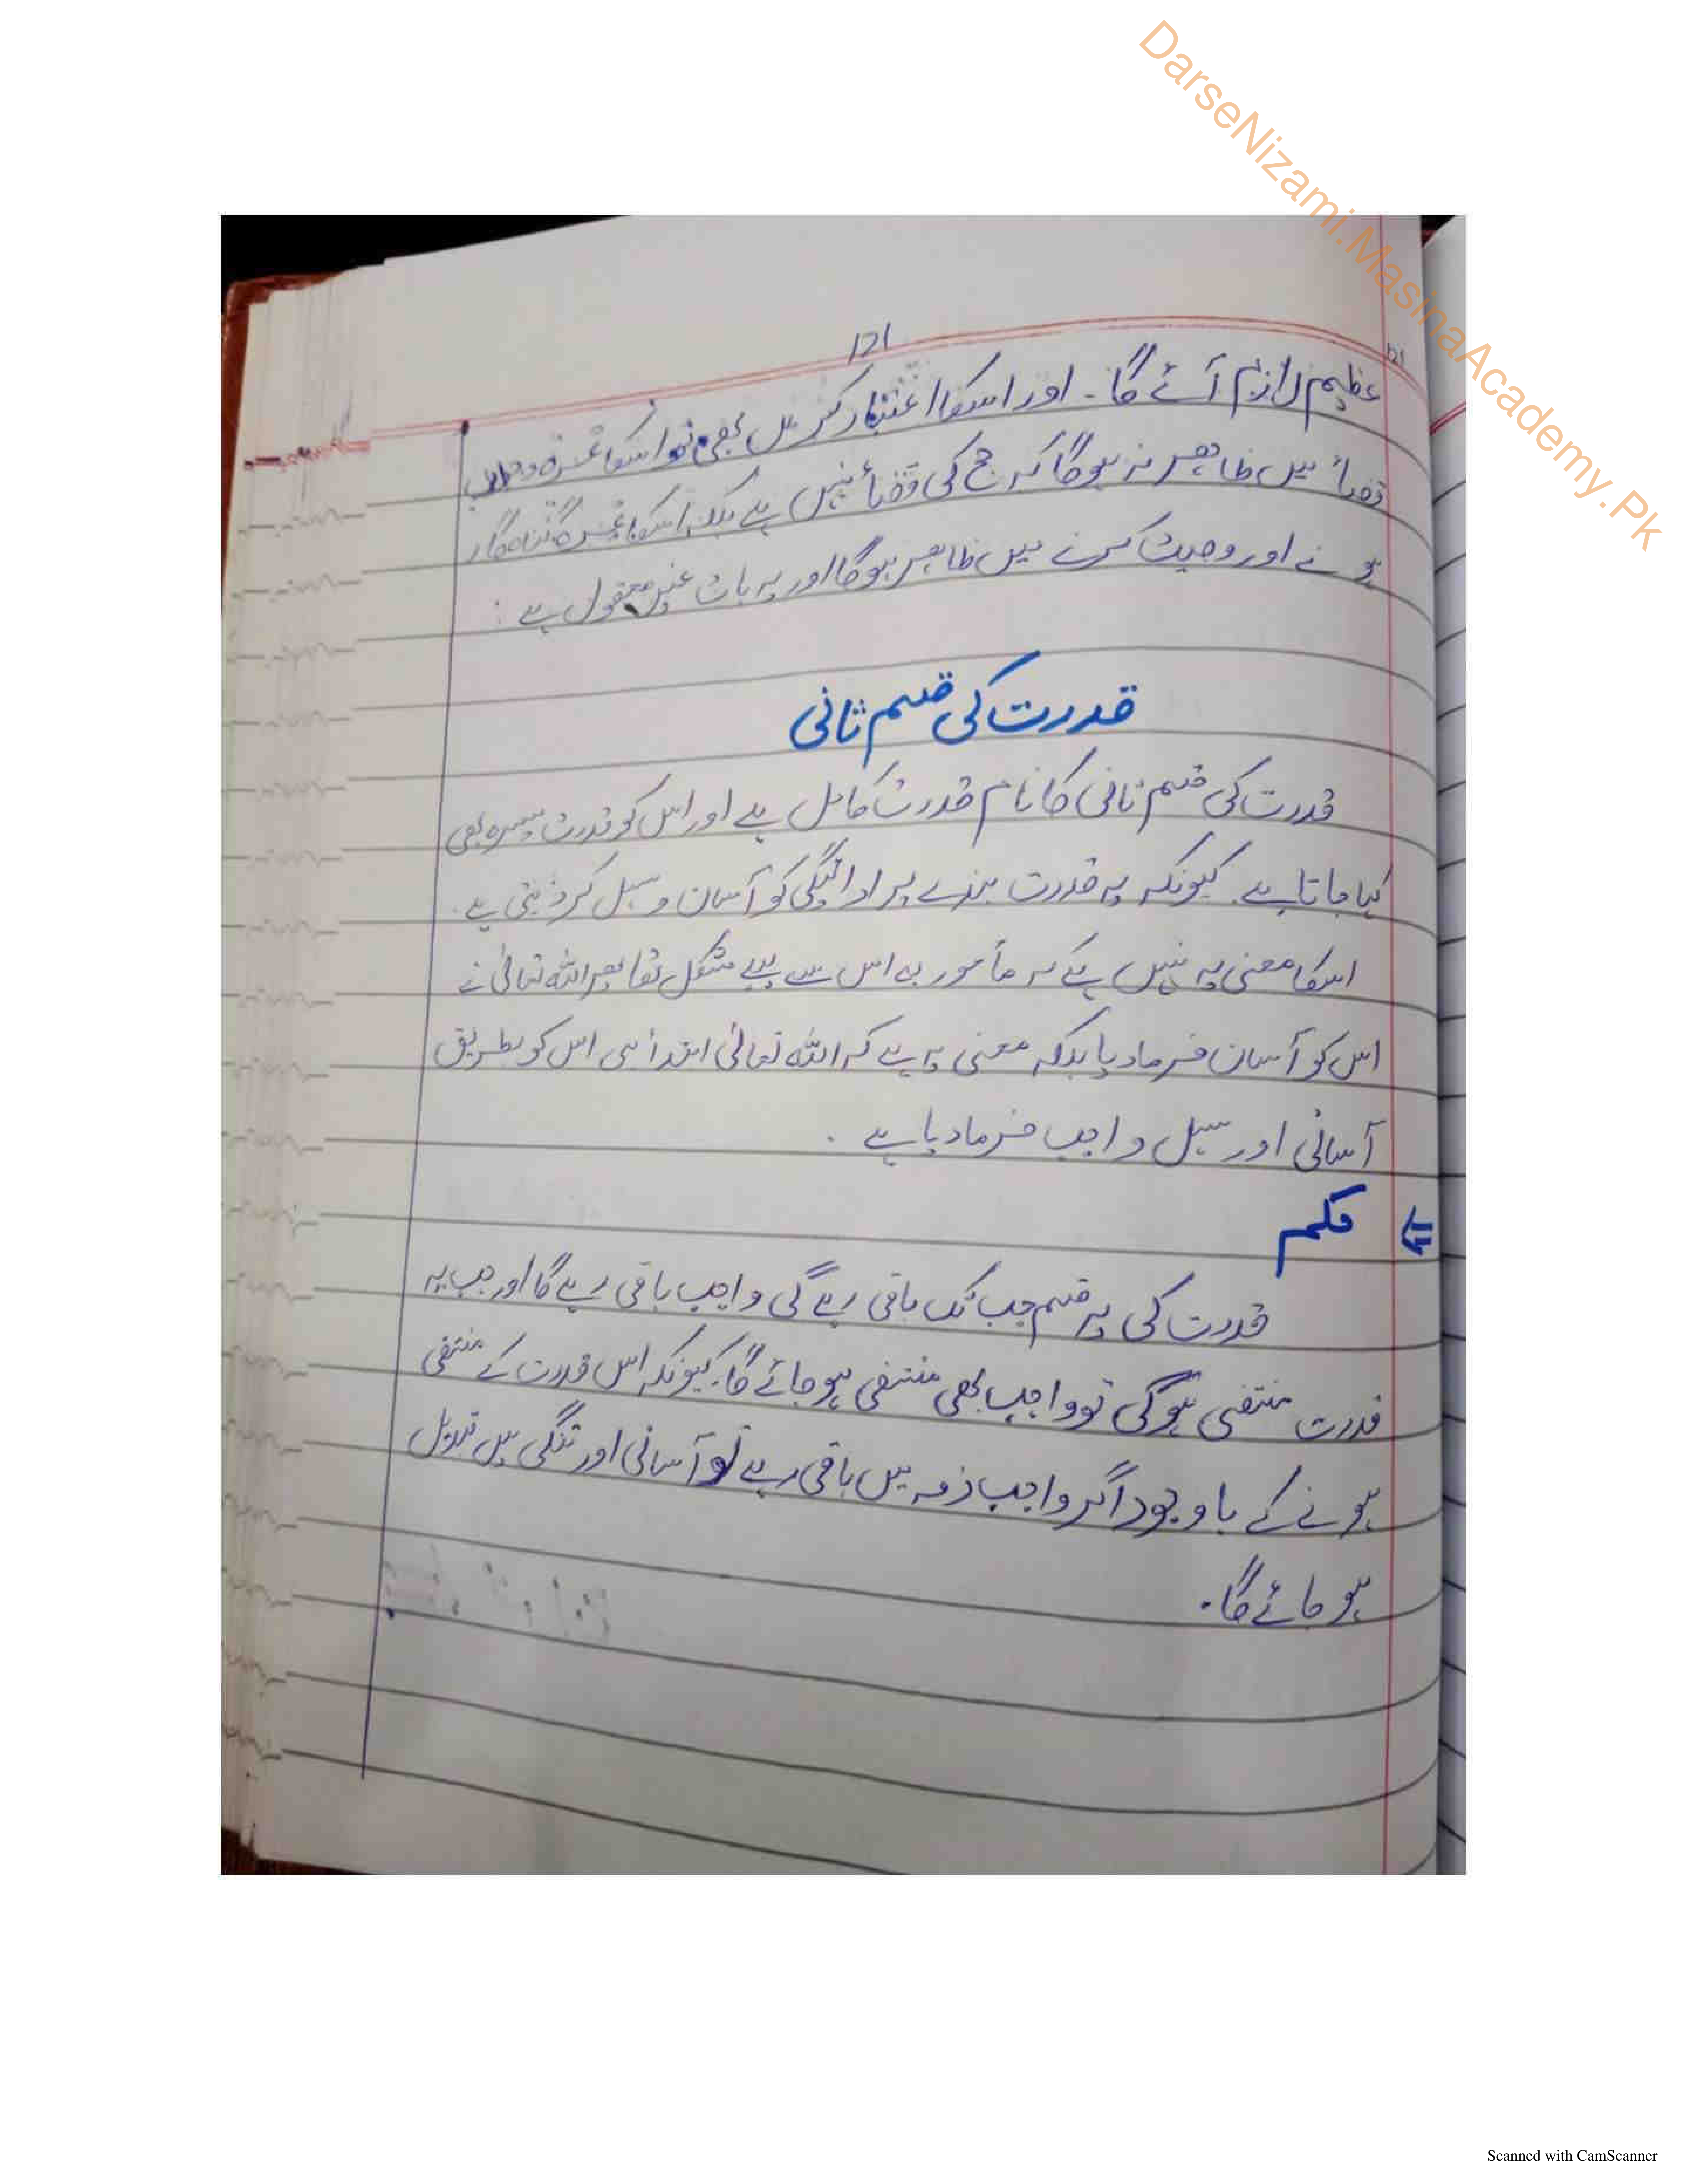 DarseNizami.MasinaAcademy.Pk
121
121
عظیم لازم آئے گا۔ اور اسکا اعتبار کریں بھی تو اسکا ثمرہ وجوب
قضاً میں ظاہر نہ ہوگا کہ حج کی قضأ نہیں ہے بلکہ اسکا ثمرہ گناہ گار
ہونے اور وصیت کرنے میں ظاہر ہوگا اور یہ بات غیر معقول ہے :
قدرت کی قسم ثانی
قدرت کی قسم ثانی کا نام قدرت کامل ہے اور اس کو قدرت میسرہ بھی
کہا جاتا ہے۔ کیونکہ یہ قدرت بندے پر ادائیگی کو آسان و سہل کر دیتی ہے۔
اسکا معنی یہ نہیں ہے کہ مأمور بہ اس سے پہلے مشکل تھا پھر اللہ تعالیٰ نے
اس کو آسان فرما دیا بلکہ معنی یہ ہے کہ اللہ تعالیٰ ابتدأ ہی اس کو بطریق
آسانی اور سہل واجب فرما دیا ہے ۔
⇐ حکم
قدرت کی یہ قسم جب تک باقی رہے گی واجب باقی رہے گا اور جب یہ
قدرت منتفی ہوگی تو واجب بھی منتفی ہو جائے گا۔ کیونکہ اس قدرت کے منتفی
ہونے کے باوجود اگر واجب ذمہ میں باقی رہے تو آسانی اور تنگی میں تبدیل
ہو جائے گا۔
Scanned with CamScanner